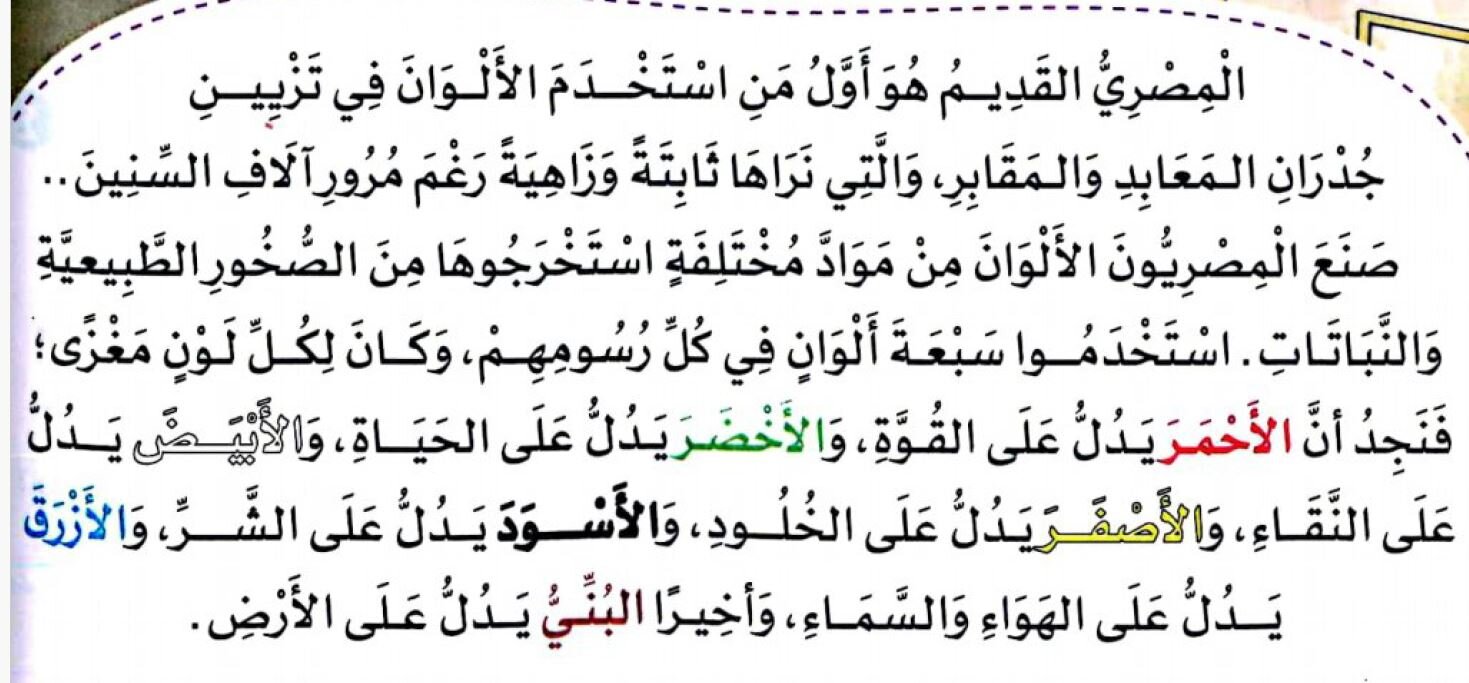 الْمِصْرِيُّ القَدِيمُ هُوَ أَوَّلُ مَنِ اسْتَخْدَمَ الأَلْوَانَ فِي تَزْيِينِ
جُدْرَانِ المَعَابِدِ وَالمَقَابِرِ، وَالَّتِي نَرَاهَا ثَابِتَةً وَزَاهِيَةً رَغْمَ مُرُورِ آلَافِ السِّنِينَ..
صَنَعَ الْمِصْرِيُّونَ الأَلْوَانَ مِنْ مَوَادَّ مُخْتَلِفَةٍ اسْتَخْرَجُوهَا مِنَ الصُّخُورِ الطَّبِيعِيَّةِ
وَالنَّبَاتَاتِ. اسْتَخْدَمُوا سَبْعَةَ أَلْوَانٍ فِي كُلِّ رُسُومِهِمْ، وَكَانَ لِكُلِّ لَوْنٍ مَغْزًى؛
فَنَجِدُ أنَّ الأَحْمَرَ يَدُلُّ عَلَى القُوَّةِ، وَالأَخْضَرَ يَدُلُّ عَلَى الحَيَاةِ، وَالأَبْيَضَ يَدُلُّ
عَلَى النَّقَاءِ، وَالأَصْفَرَ يَدُلُّ عَلَى الخُلُودِ، وَالأَسْوَدَ يَدُلُّ عَلَى الشَّرِّ، وَالأَزْرَقَ
يَدُلُّ عَلَى الهَوَاءِ وَالسَّمَاءِ، وَأخِيرًا البُنِّيُّ يَدُلُّ عَلَى الأَرْضِ.